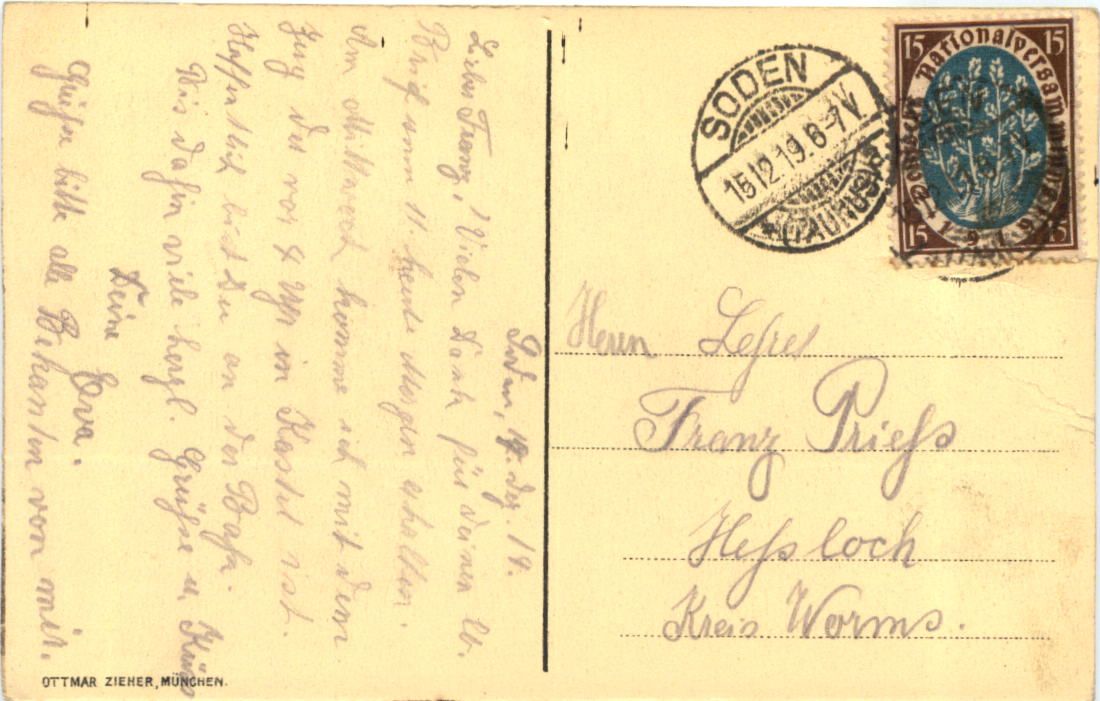 Soden, 14. Dez. 19.
Lieber Franz! Vielen Dank für Deinen lb.
Brief vom 11. heute Morgen erhalten.
Am Mittwoch komme ich mit dem
Zug der vor 4 Uhr in Kastel ist.
Hoffentlich bist Du an der Bahn.
Bis dahin viele herzl. Grüße u Küsse
Deine Eva.
Grüße bitte alle Bekanten von mir.
OTTMAR ZIEHER, MÜNCHEN.
SODEN
15.12.19.6-7V
(TAUNUS)
15 15
Deutsche Nationalversammlung
1919
15 15
Herrn Lehrer
Franz Prieß
Heßloch
Kreis Worms.